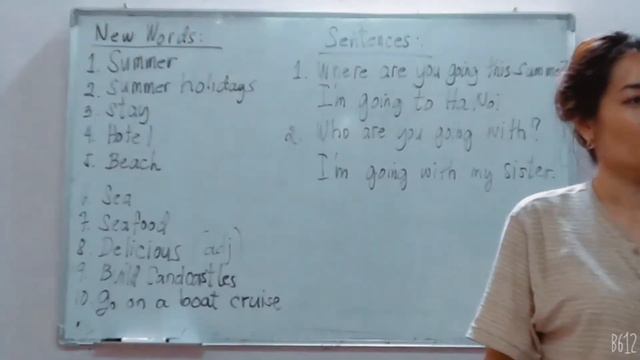 New Words:
1. Summer
2. Summer holidays
3. Stay
4. Hotel
5. Beach
6. Sea
7. Seafood
8. Delicious (adj)
9. Build Sandcastles
10. go on a boat cruise
Sentences:
1. Where are you going this summer?
I'm going to Ha Noi
2. Who are you going with?
I'm going with my sister.
B612